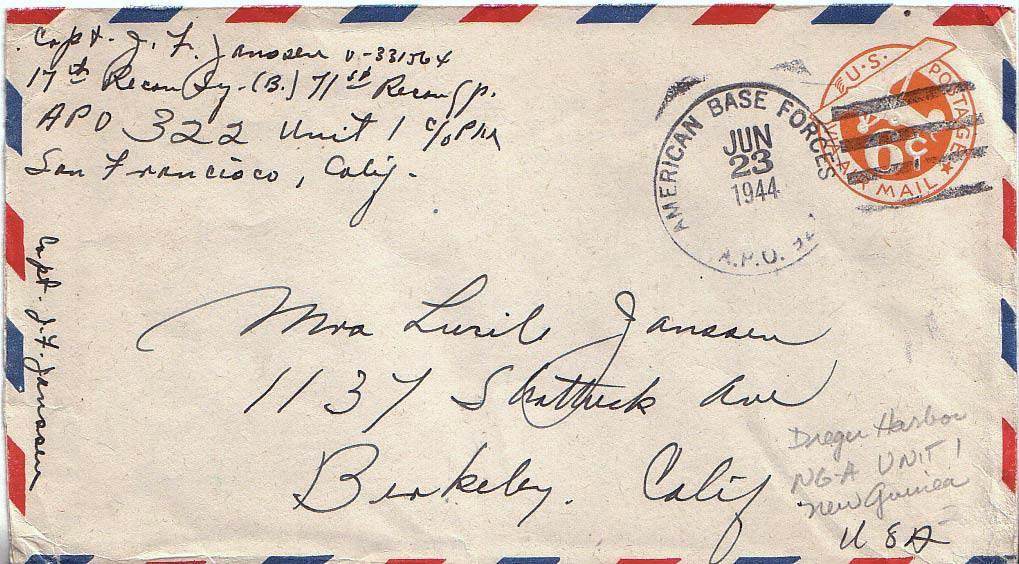 Capt. J. F. Janssen O-331564
17th Recon Sq. (B.) 71st Recon Gp.
APO 322 Unit 1 c/o PM
San Francisco, Calif.
AMERICAN BASE FORCES
JUN
23
1944
A.P.O.
U.S. POSTAGE
VIA AIR MAIL
6c
Capt. J. F. Janssen
Mrs Lucile Janssen
1137 Shattuck Ave
Berkeley. Calif
USA
Dreger Harbor
NG-A UNIT 1
New Guinea